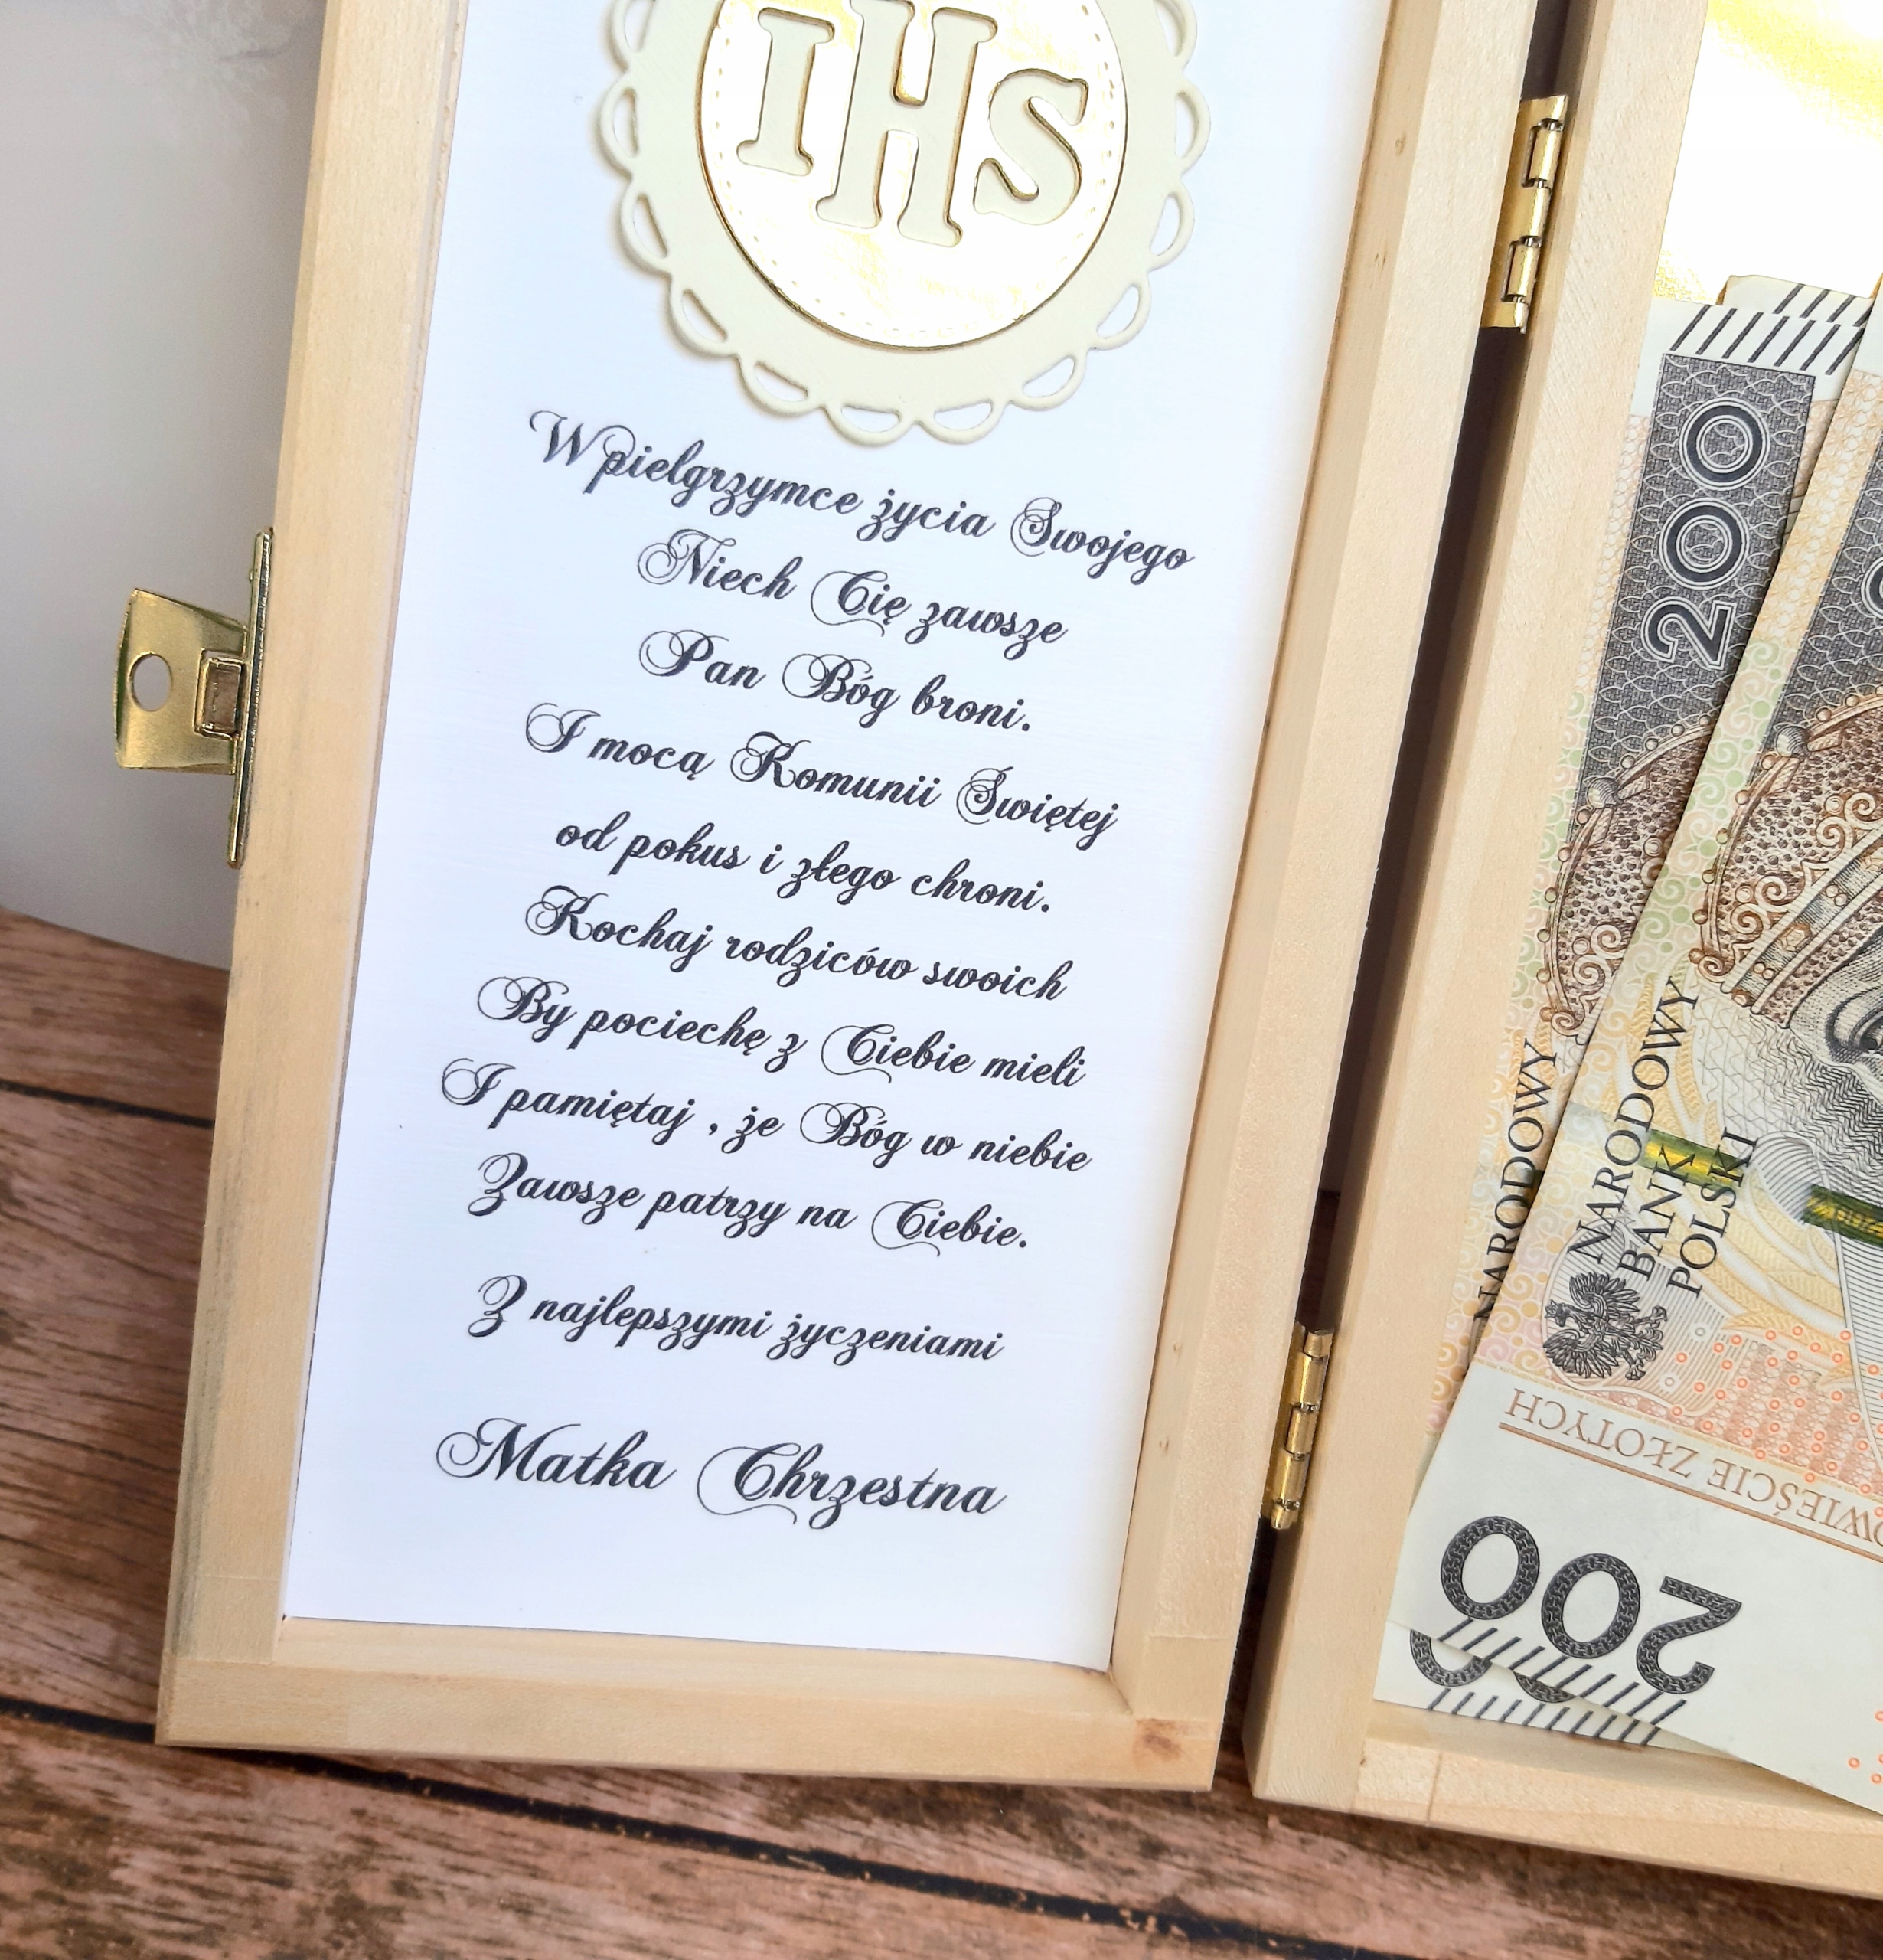 IHS
W pielgrzymce życia Swojego
Niech Cię zawsze
Pan Bóg broni.
I mocą Komunii Świętej
od pokus i złego chroni.
Kochaj rodziców swoich
By pociechę z Ciebie mieli
I pamiętaj , że Bóg w niebie
Zawsze patrzy na Ciebie.
Z najlepszymi życzeniami
Matka Chrzestna
200
NARODOWY
NARODOWY
BANK
POLSKI
ZŁOTYCH
200